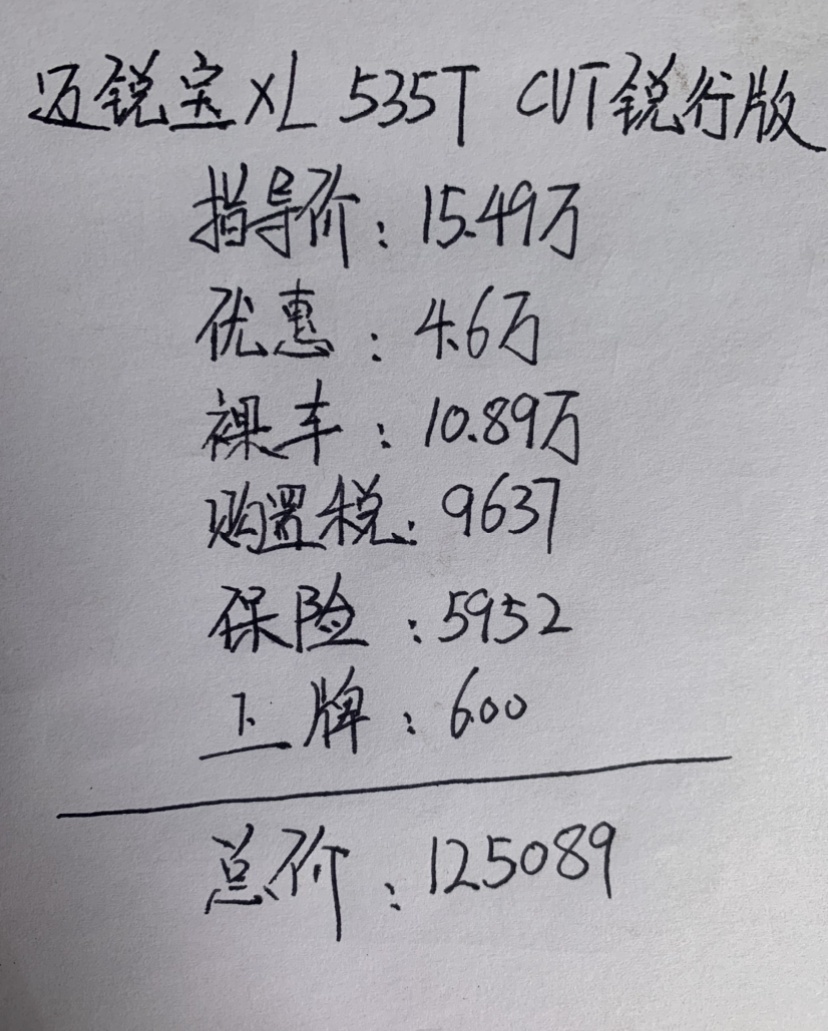 迈锐宝XL 535T CVT锐行版
指导价：15.49万
优惠：4.6万
裸车：10.89万
购置税：9637
保险：5952
上牌：600
总价：125089